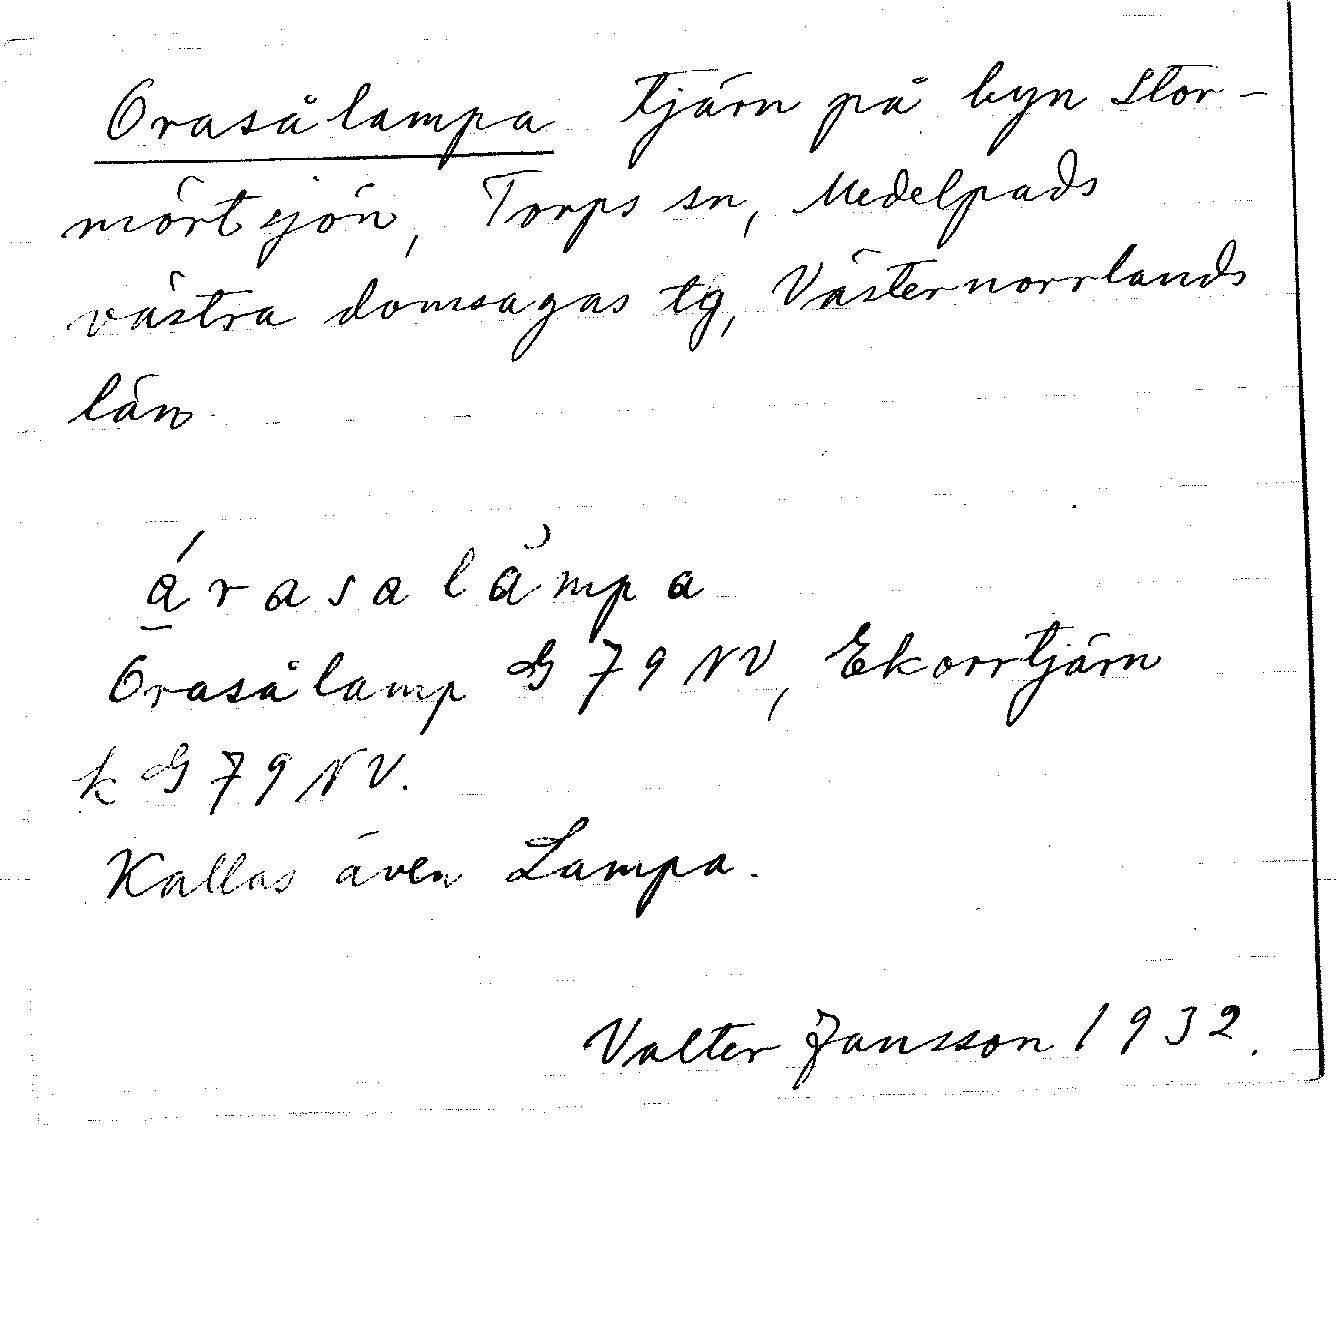 Orasålampa tjärn på byn Stor-
mörtsjön, Torps sn, Medelpads
västra domsagas tg, Västernorrlands
län
árasalampa
Orasålamp G 79 NV, Ekorrtjärn
k G 79 NV.
Kallas även Lampa.
Valter Jansson 1932.